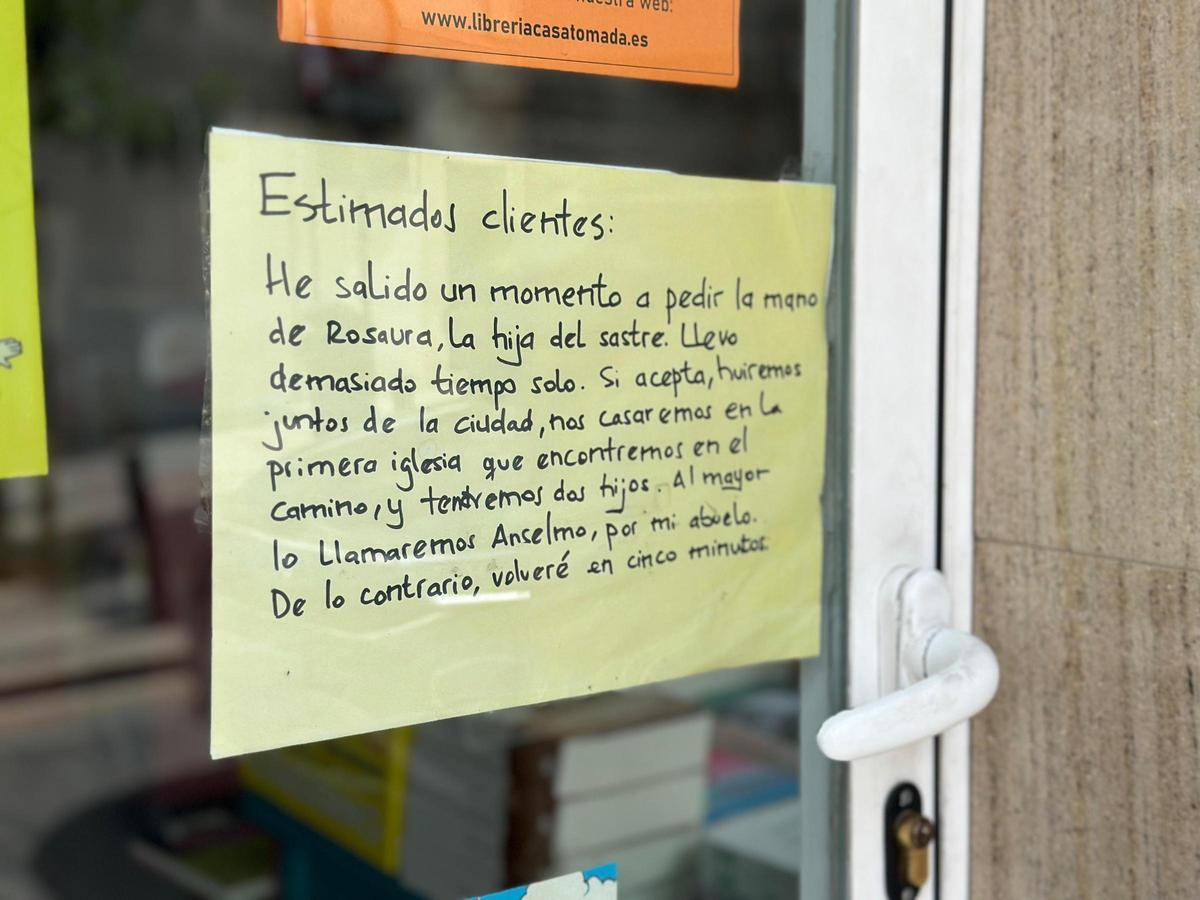 nuestra web:
www.libreriacasatomada.es
Estimados clientes:
He salido un momento a pedir la mano
de Rosaura, la hija del sastre. Llevo
demasiado tiempo solo. Si acepta, huiremos
juntos de la ciudad, nos casaremos en la
primera iglesia que encontremos en el
camino, y tendremos dos hijos. Al mayor
lo llamaremos Anselmo, por mi abuelo.
De lo contrario, volveré en cinco minutos.